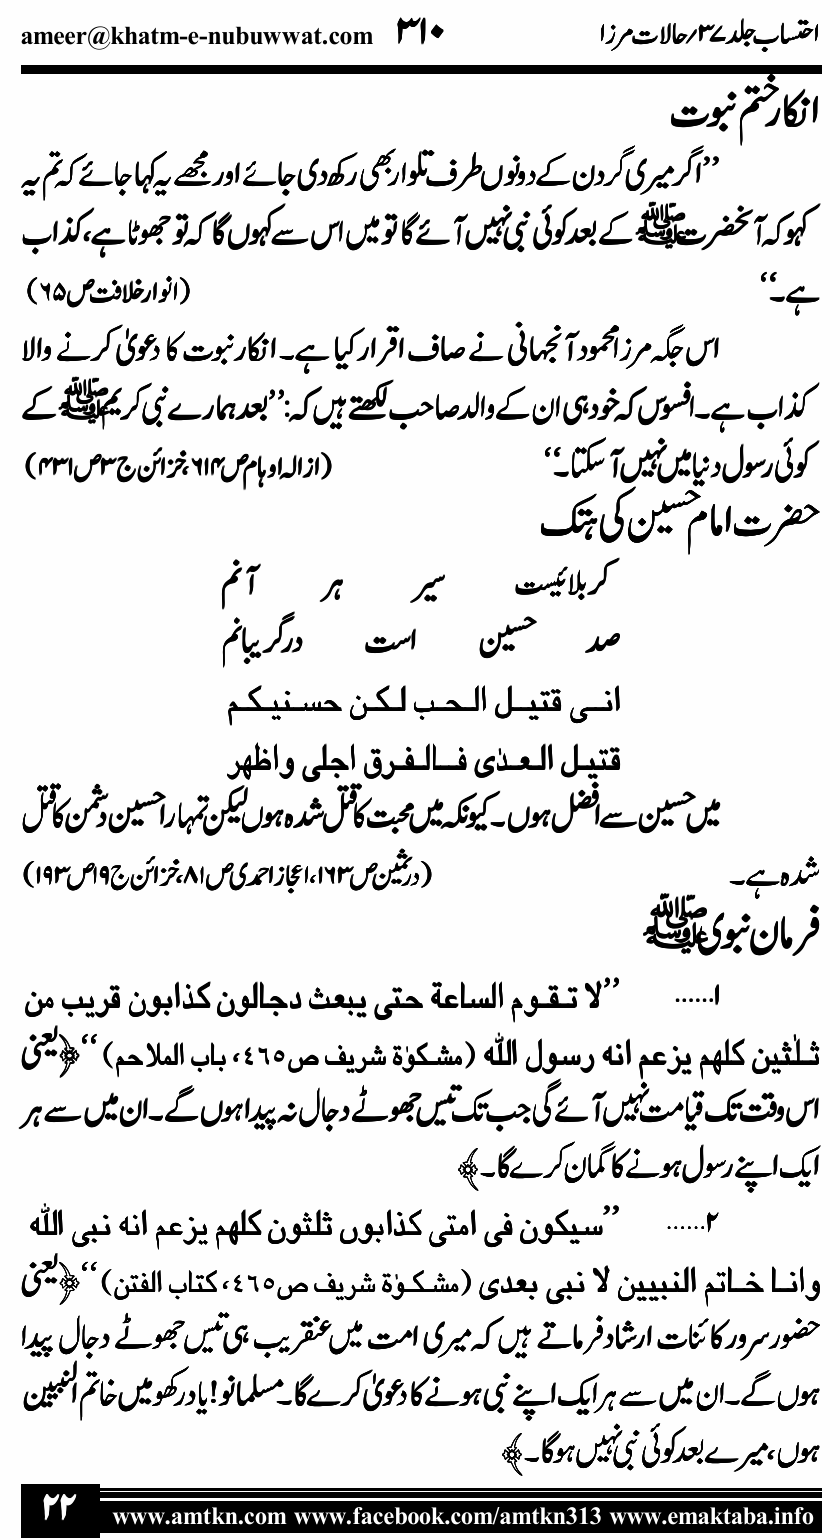 احتساب جلد ۳۷/حالات مرزا ۳۱۰ ameer@khatm-e-nubuwwat.com
انکار ختم نبوت
’’اگر میری گردن کے دونوں طرف تلوار بھی رکھ دی جائے اور مجھے یہ کہا جائے کہ تم یہ
کہو کہ آنحضرت ﷺ کے بعد کوئی نبی نہیں آئے گا تو میں اس سے کہوں گا کہ تو جھوٹا ہے، کذاب
ہے۔‘‘ (انوار خلافت ص۶۵)
اس جگہ مرزا محمود آنجہانی نے صاف اقرار کیا ہے۔ انکار نبوت کا دعویٰ کرنے والا
کذاب ہے۔ افسوس کہ خود ہی ان کے والد صاحب لکھتے ہیں کہ: ’’بعد ہمارے نبی کریم ﷺ کے
کوئی رسول دنیا میں نہیں آ سکتا۔‘‘ (ازالہ اوہام ص۶۱۴، خزائن ج۳ ص۴۳۱)
حضرت امام حسین کی ہتک
کربلائیست سیر ہر آنم
صد حسین است درگریبانم
انی قتیل الحب لکن حسنیکم
قتیل العدٰی فالفرق اجلی واظهر
میں حسین سے افضل ہوں۔ کیونکہ میں محبت کا قتل شدہ ہوں لیکن تمہارا حسین دشمن کا قتل
شدہ ہے۔ (درثمین ص۱۶۳، اعجاز احمدی ص۸۱، خزائن ج۱۹ ص۱۹۳)
فرمان نبوی ﷺ
۱...... ’’لا تقوم الساعة حتی یبعث دجالون کذابون قریب من
ثلٰثین کلهم یزعم انه رسول الله (مشکوٰة شریف ص٤٦٥، باب الملاحم)‘‘ ﴿یعنی
اس وقت تک قیامت نہیں آئے گی جب تک تیس جھوٹے دجال نہ پیدا ہوں گے۔ ان میں سے ہر
ایک اپنے رسول ہونے کا گمان کرے گا۔﴾
۲...... ’’سیکون فی امتی کذابوں ثلثون کلهم یزعم انه نبی الله
وانا خاتم النبیین لا نبی بعدی (مشکوٰة شریف ص٤٦٥، کتاب الفتن)‘‘ ﴿یعنی
حضور سرور کائنات ارشاد فرماتے ہیں کہ میری امت میں عنقریب ہی تیس جھوٹے دجال پیدا
ہوں گے۔ ان میں سے ہر ایک اپنے نبی ہونے کا دعویٰ کرے گا۔ مسلمانو! یاد رکھو میں خاتم النبیین
ہوں، میرے بعد کوئی نبی نہیں ہوگا۔﴾
۲۲ www.amtkn.com www.facebook.com/amtkn313 www.emaktaba.info